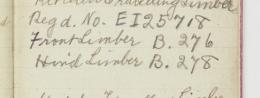 Limber
Regd. No. EI25718
Front Limber B. 276
Hind Limber B. 278
Limber